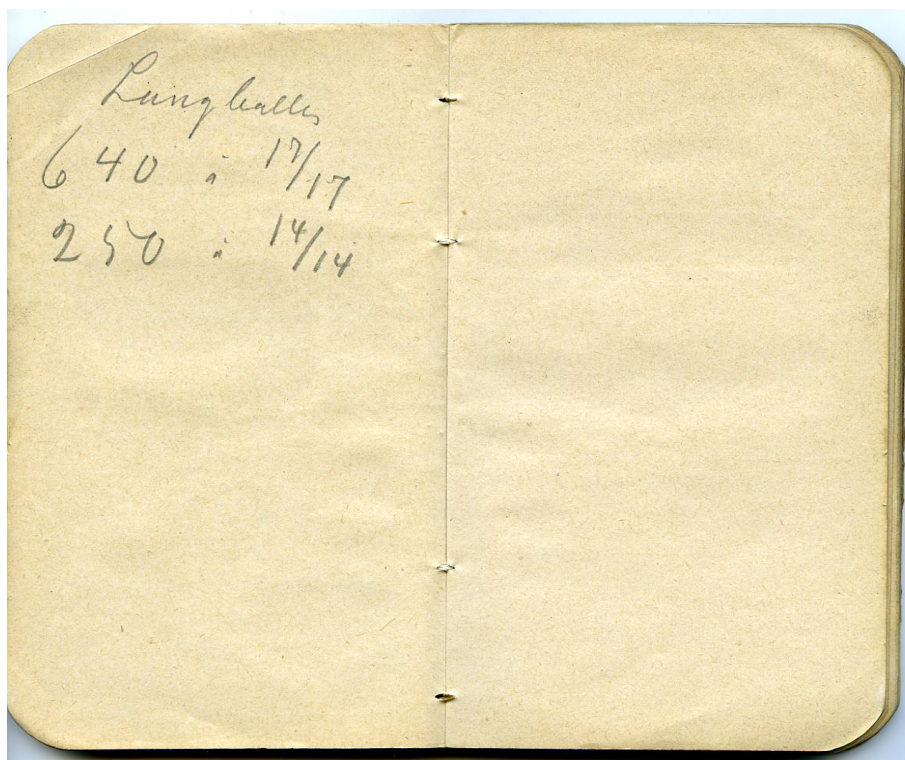 Langballe
640 à 17/17
250 à 14/14